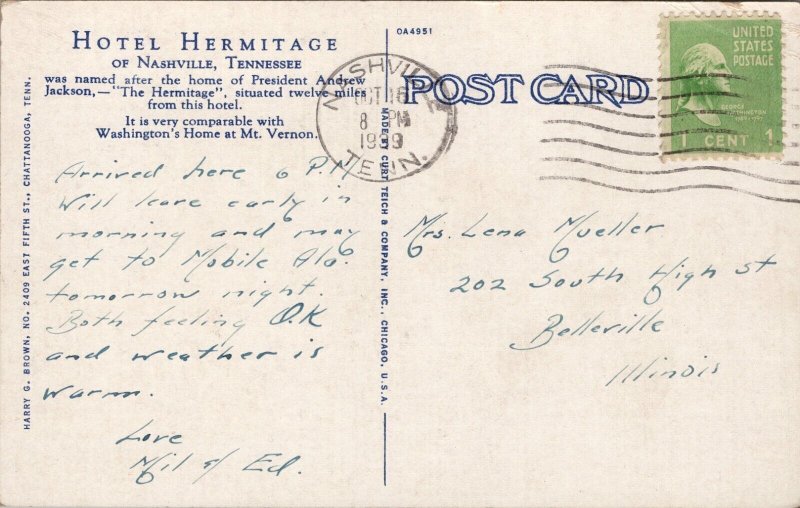 HOTEL HERMITAGE
OF NASHVILLE, TENNESSEE
was named after the home of President Andrew
Jackson,—"The Hermitage", situated twelve miles
from this hotel.
It is very comparable with
Washington's Home at Mt. Vernon.
Arrived here 6 P.M
Will leave early in
morning and may
get to Mobile Ala.
tomorrow night.
Both feeling O.K
and weather is
warm.
Love
Mil & Ed.
HARRY G. BROWN, NO. 2409 EAST FIFTH ST., CHATTANOOGA, TENN.
MADE BY CURT TEICH & COMPANY, INC., CHICAGO, U.S.A.
OA4951
POST CARD
NASHVILLE
OCT 16
8 PM
1939
TENN.
UNITED
STATES
POSTAGE
GEORGE
WASHINGTON
1 CENT 1
Mrs. Lena Mueller
202 South High St
Belleville
Illinois